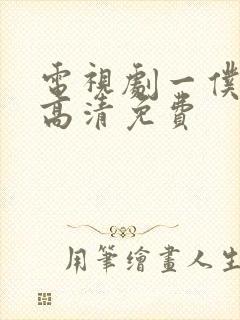 電視劇一僕
高清免費
用筆繪畫人生